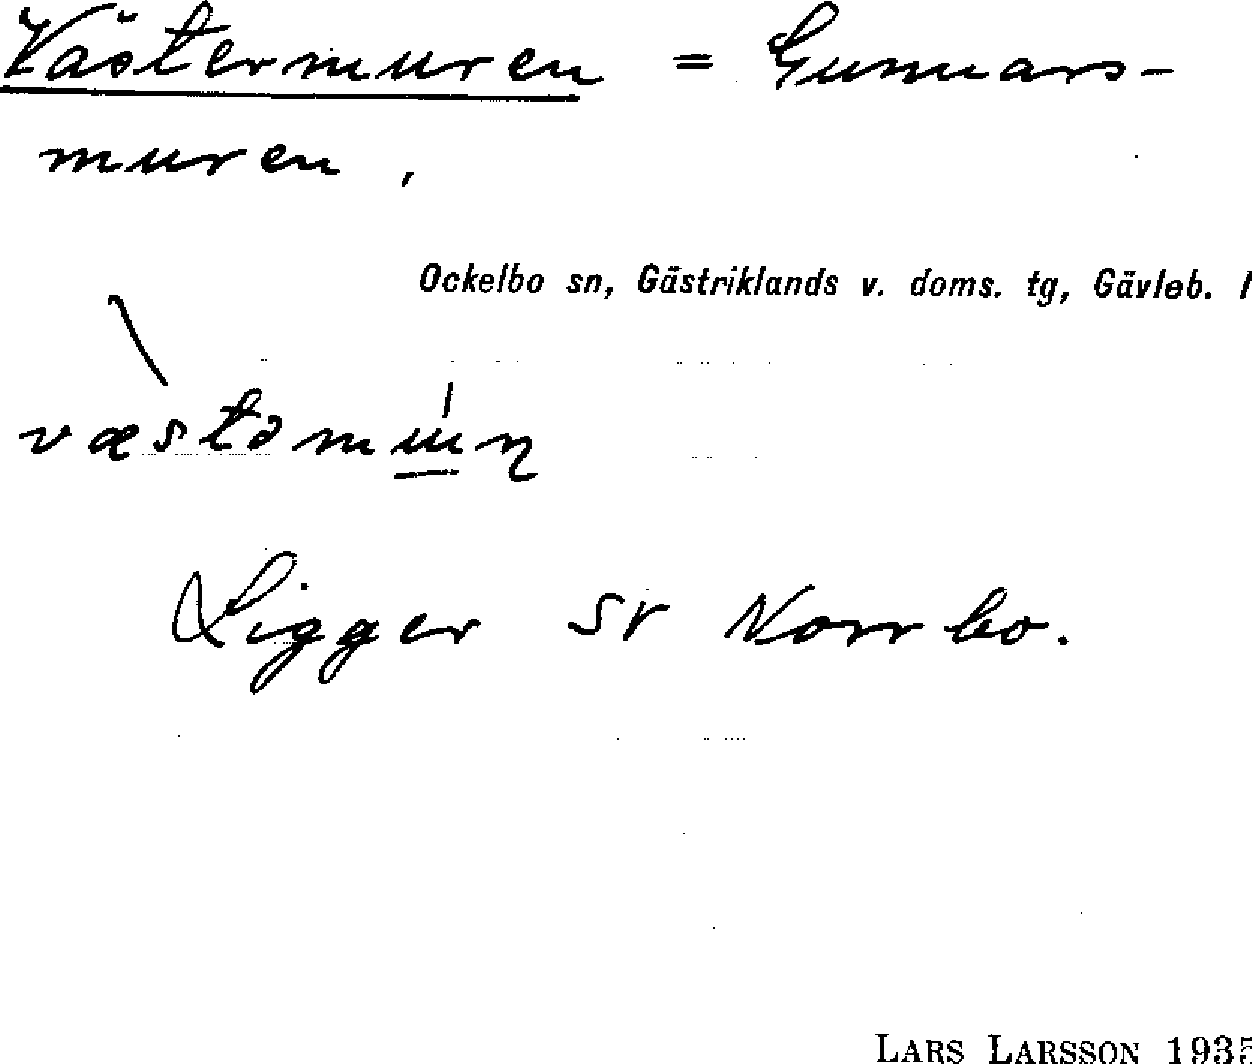 Västermuren = Gunnars-
muren,
Ockelbo sn, Gästriklands v. doms. tg, Gävleb. l
Ligger sv Norrbo.
LARS LARSSON 1935